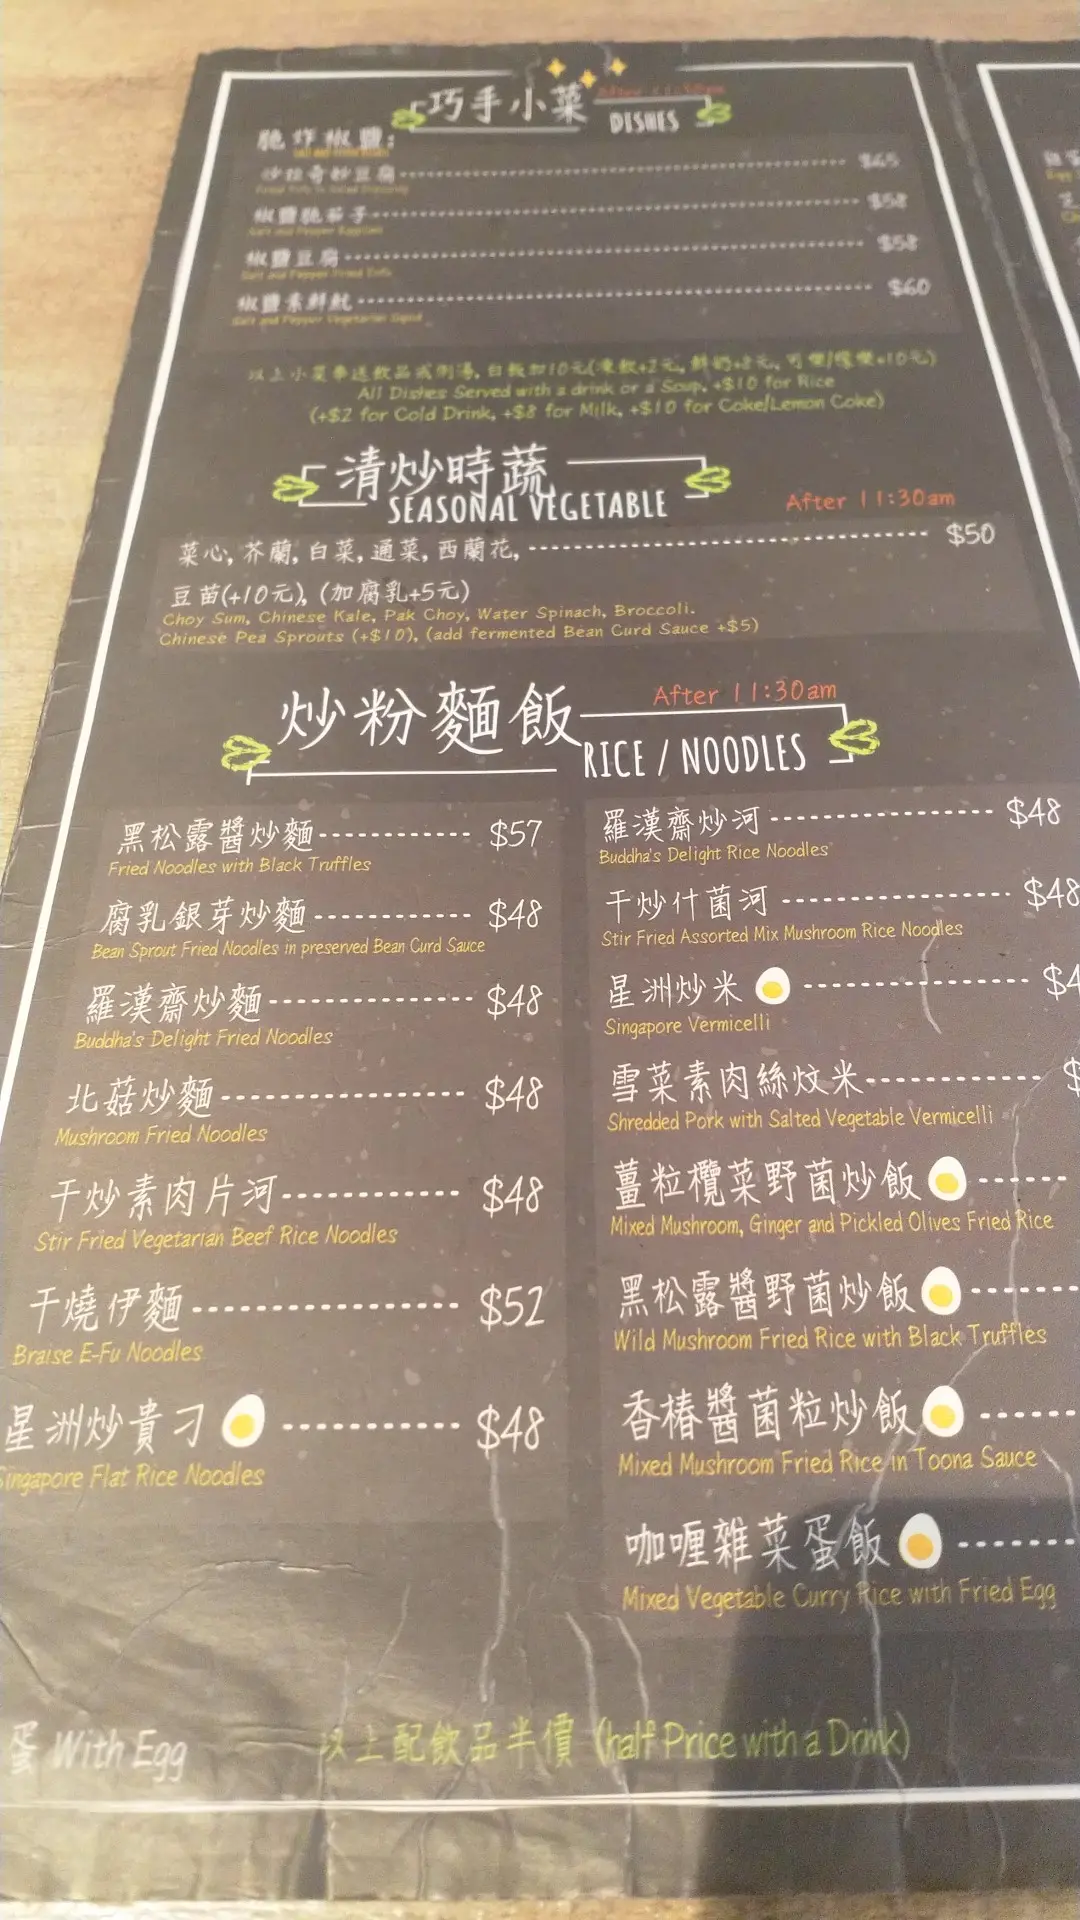 巧手小菜 After 11:30am
DISHES
脆炸椒鹽:
沙拉奇妙豆腐 $65
椒鹽脆茄子 $58
Salt and Pepper Eggplant
椒鹽豆腐 $58
Salt and Pepper Fried Tofu
椒鹽素鮮魷 $60
Salt and Pepper Vegetarian Squid
以上小菜奉送飲品或例湯, 白飯加10元(凍飲+2元, 鮮奶+8元, 可樂/檸樂+10元)
All Dishes Served with a drink or a Soup, +$10 for Rice
(+$2 for Cold Drink, +$8 for Milk, +$10 for Coke/Lemon Coke)
清炒時蔬
SEASONAL VEGETABLE
After 11:30am
菜心, 芥蘭, 白菜, 通菜, 西蘭花, $50
豆苗(+10元), (加腐乳+5元)
Choy Sum, Chinese Kale, Pak Choy, Water Spinach, Broccoli.
Chinese Pea Sprouts (+$10), (add fermented Bean Curd Sauce +$5)
炒粉麵飯
After 11:30am
RICE / NOODLES
黑松露醬炒麵 $57
Fried Noodles with Black Truffles
腐乳銀芽炒麵 $48
Bean Sprout Fried Noodles in preserved Bean Curd Sauce
羅漢齋炒麵 $48
Buddha's Delight Fried Noodles
北菇炒麵 $48
Mushroom Fried Noodles
干炒素肉片河 $48
Stir Fried Vegetarian Beef Rice Noodles
干燒伊麵 $52
Braise E-Fu Noodles
星洲炒貴刁 $48
Singapore Flat Rice Noodles
羅漢齋炒河 $48
Buddha's Delight Rice Noodles
干炒什菌河 $48
Stir Fried Assorted Mix Mushroom Rice Noodles
星洲炒米 $4
Singapore Vermicelli
雪菜素肉絲炆米 $
Shredded Pork with Salted Vegetable Vermicelli
薑粒欖菜野菌炒飯
Mixed Mushroom, Ginger and Pickled Olives Fried Rice
黑松露醬野菌炒飯
Wild Mushroom Fried Rice with Black Truffles
香椿醬菌粒炒飯
Mixed Mushroom Fried Rice in Toona Sauce
咖喱雜菜蛋飯
Mixed Vegetable Curry Rice with Fried Egg
蛋 With Egg
以上配飲品半價 (half Price with a Drink)